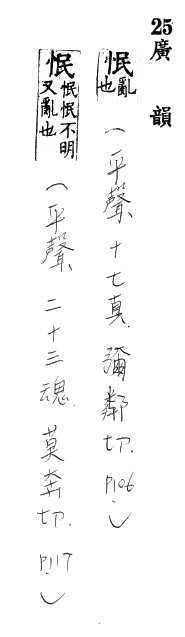 25廣韻
怋亂也(平聲十七真.彌鄰切.P106.)
怋怋怋不明又亂也(平聲二十三魂.莫奔切.P117.)